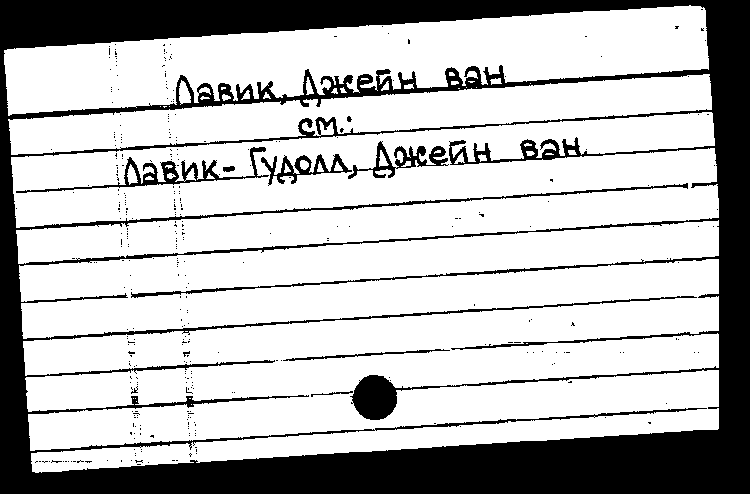 Лавик, Джейн ван
см.:
Лавик-Гудолл, Джейн ван.